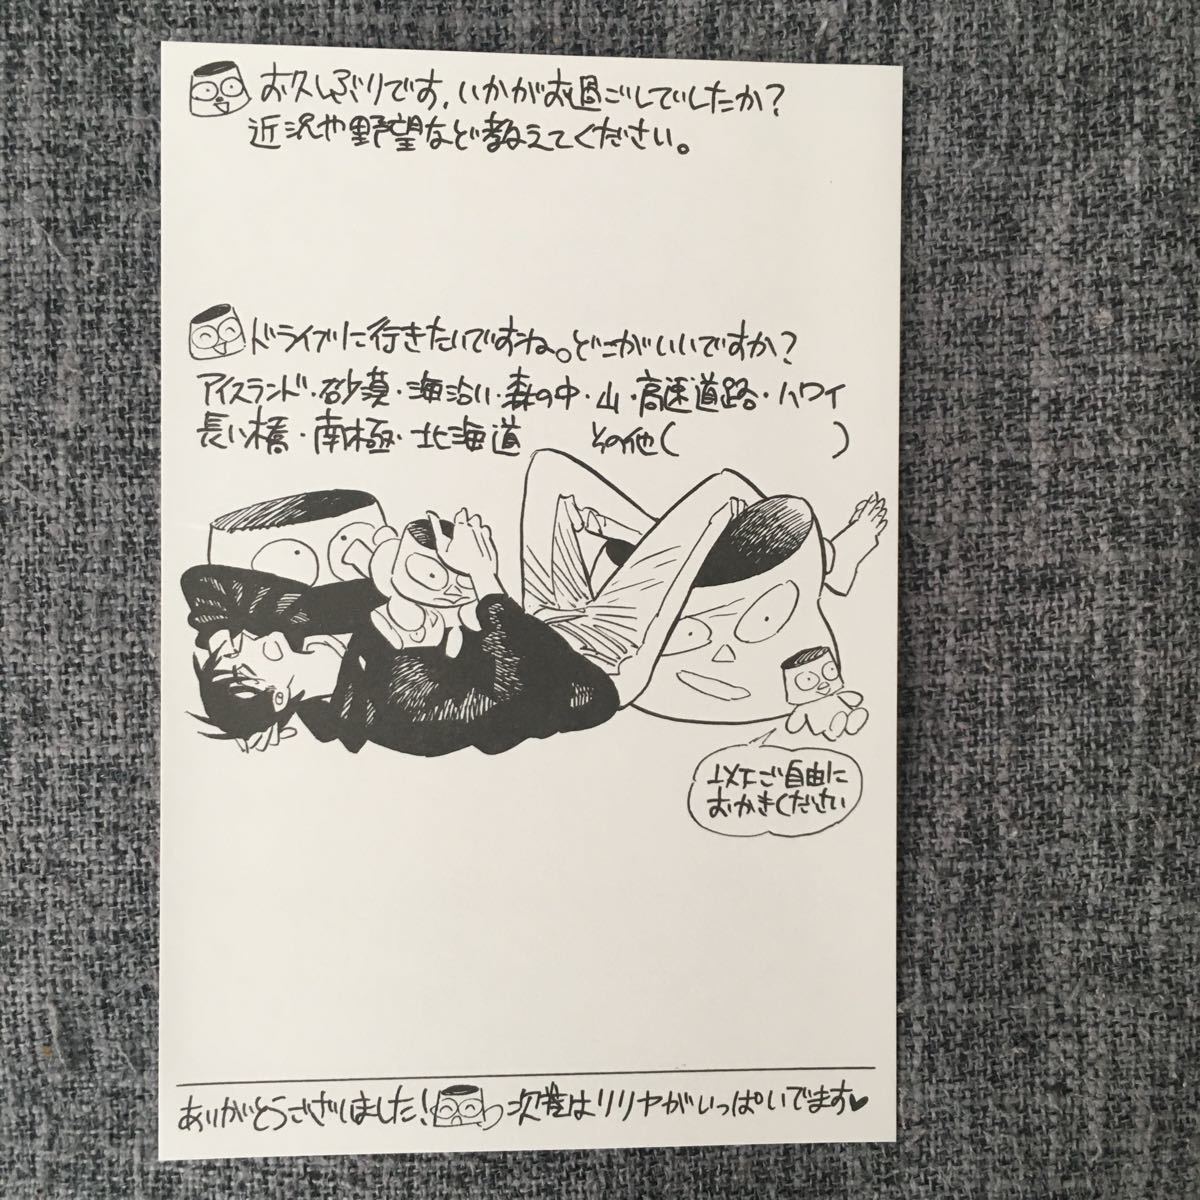 お久しぶりです。いかがお過ごしでしたか？
近況や野望など教えてください。
ドライブに行きたいですね。どこがいいですか？
アイスランド・砂漠・海沿い・森の中・山・高速道路・ハワイ
長い橋・南極・北海道 その他( )
以下ご自由に
おかきください
ありがとうございました！次巻はリリヤがいっぱいでます♥